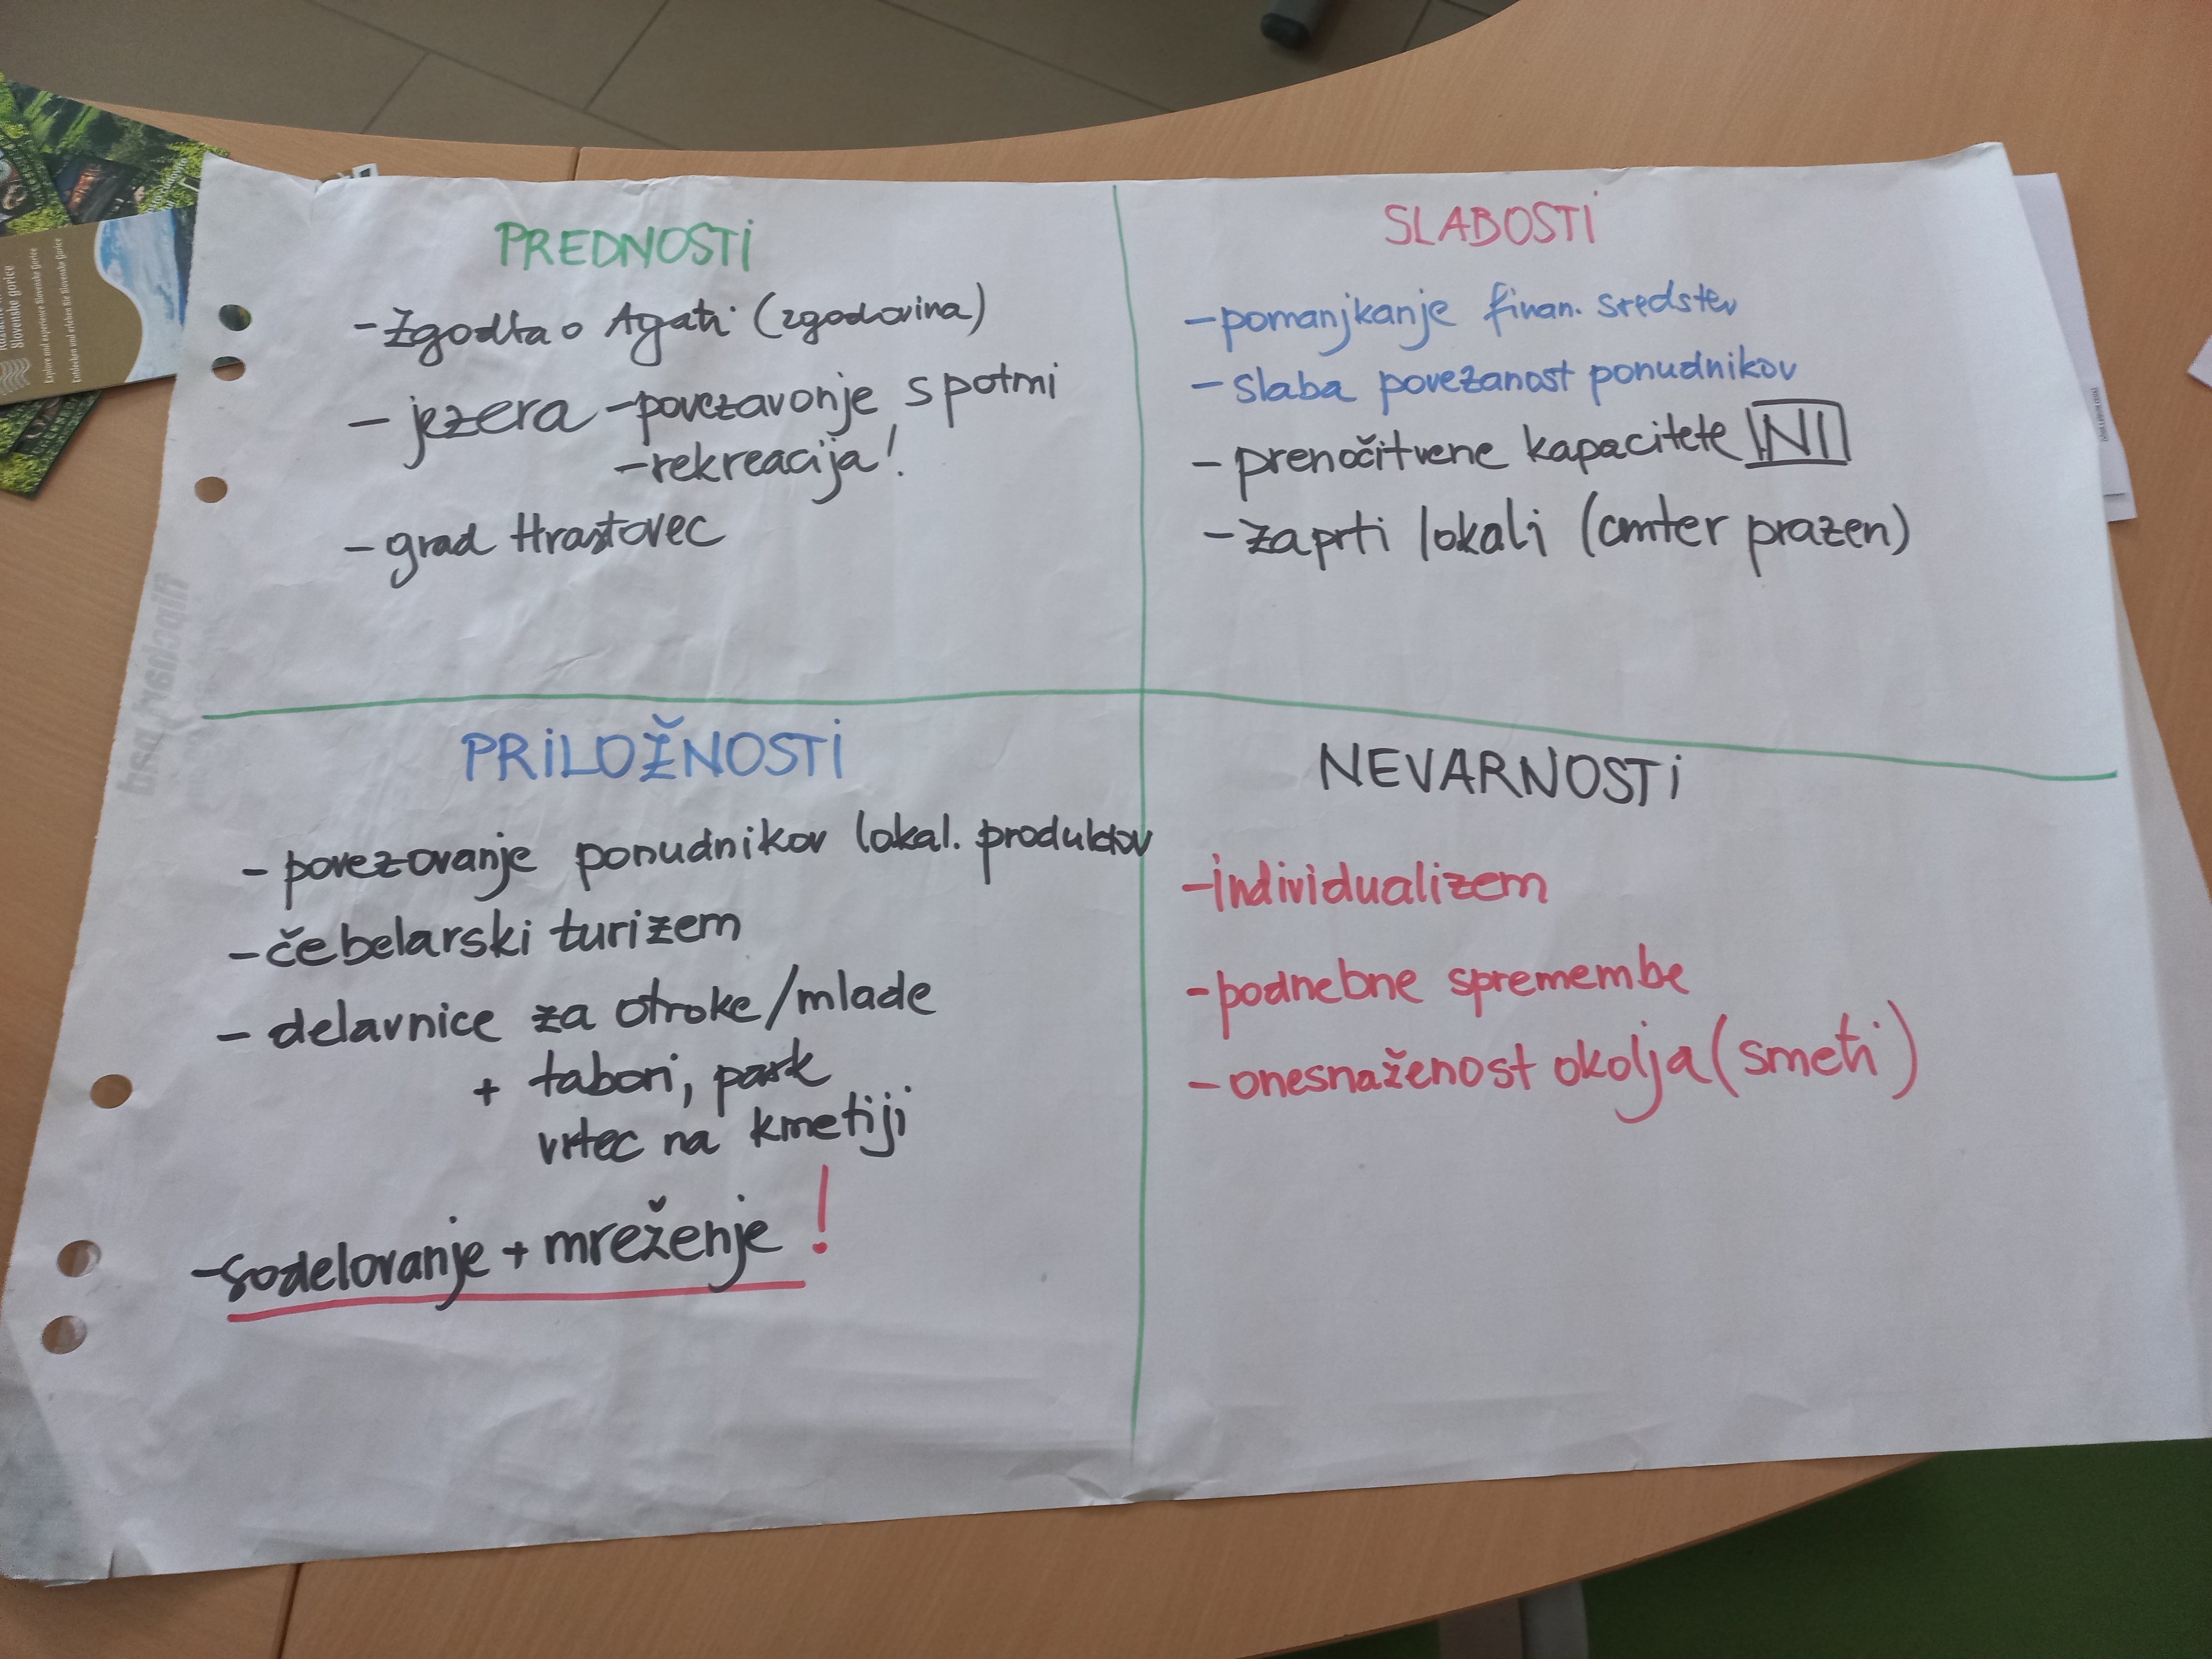 PREDNOSTI
- Zgodba o Agati (zgodovina)
- jezera - povezavanje s potmi
- rekreacija!
- grad Hrastovec
SLABOSTI
- pomanjkanje finan. sredstev
- slaba povezanost ponudnikov
- prenočitvene kapacitete NI
- zaprti lokali (center prazen)
PRILOŽNOSTI
- povezovanje ponudnikov lokal. produktov
- čebelarski turizem
- delavnice za otroke/mlade
+ tabori, park
vrtec na kmetiji
- sodelovanje + mreženje !
NEVARNOSTI
- individualizem
- podnebne spremembe
- onesnaženost okolja (smeti)
Slovenske gorice
Explore and experience Slovenske Gorice
Entdecken und erleben Sie Slovenske Gorice